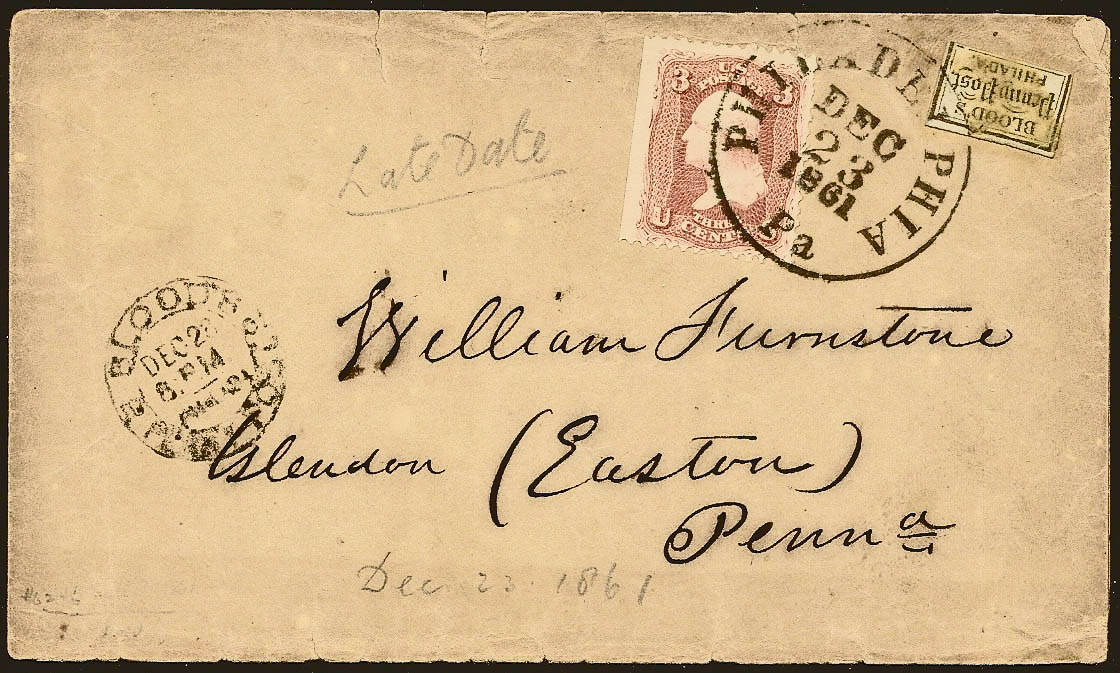 3 U.S. 3
POSTAGE
U
THREE
CENTS
PHILADELPHIA
DEC
23
1861
Pa
BLOOD'S
Penny Post
PHILADA.
Late Date
BLOOD'S
DEC 2
William Furnstone
Glendon (Easton)
Penna
Dec 23 1861